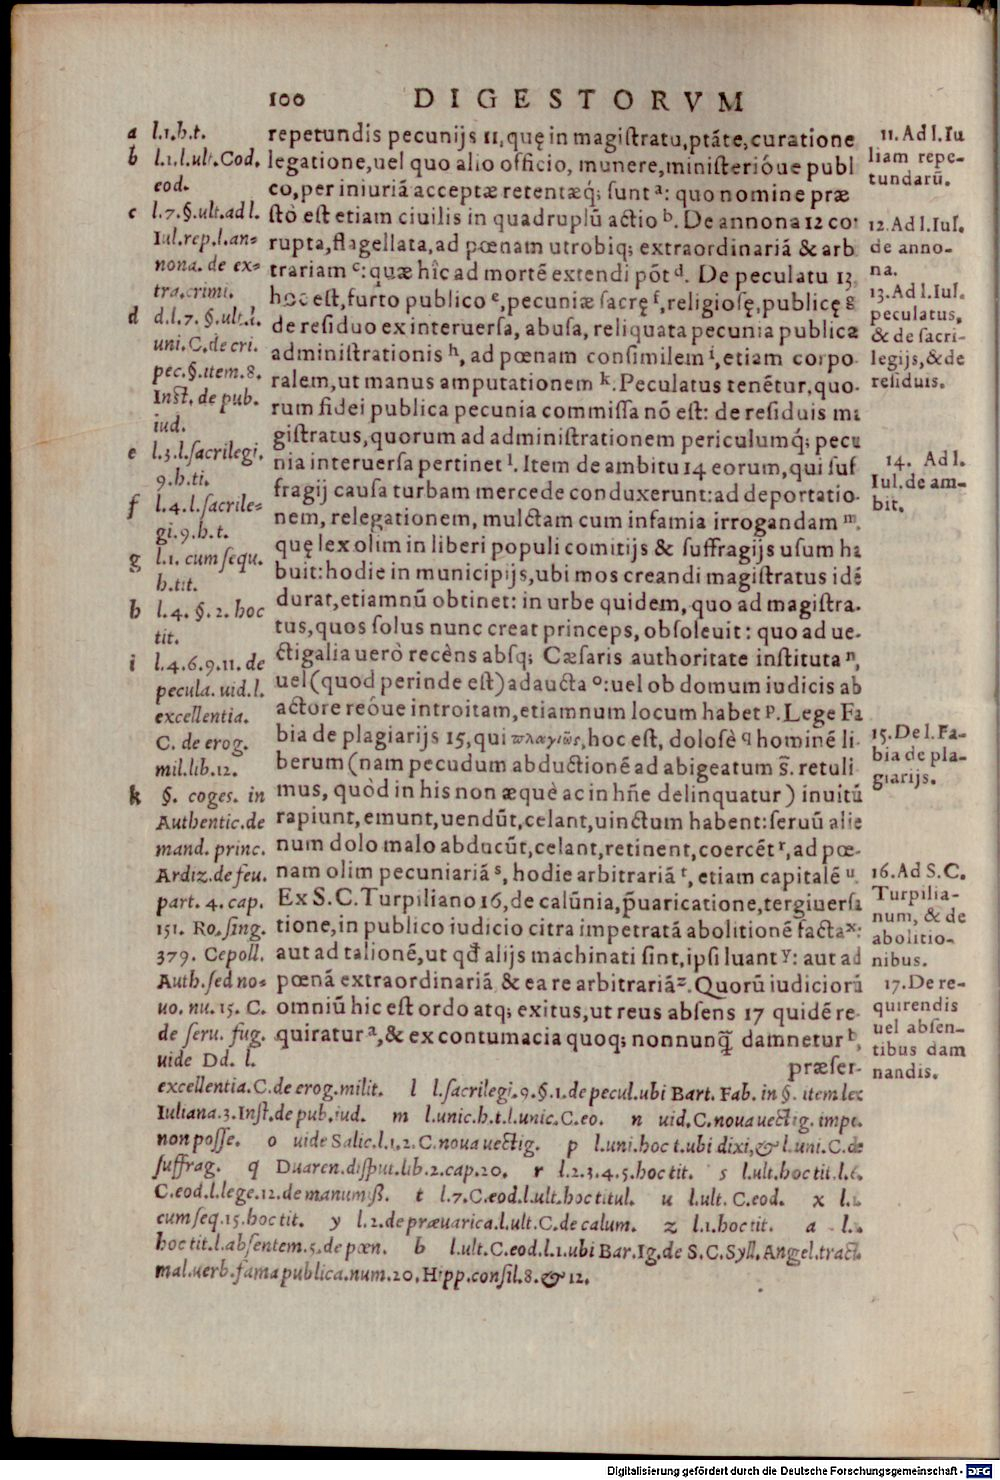 100 DIGESTORVM
repetundis pecunijs 11, quę in magiſtratu, ptãte, curatione
legatione, uel quo alio officio, munere, miniſterióue publ
co, per iniuriã acceptæ retentæq́; ſunt ᵃ: quo nomine præ
ſtò eſt etiam ciuilis in quadruplũ actio ᵇ. De annona 12 cor
rupta, flagellata, ad pœnam utrobiq; extraordinariã & arb
trariam ᶜ: quæ hîc ad mortẽ extendi põt ᵈ. De peculatu 13,
hoc eſt, furto publico ᵉ, pecuniæ ſacrę ᶠ, religioſę, publicę ᵍ
de reſiduo ex interuerſa, abuſa, reliquata pecunia publica
adminiſtrationis ʰ, ad pœnam conſimilem ⁱ, etiam corpo-
ralem, ut manus amputationem ᵏ. Peculatus tenẽtur, quo-
rum fidei publica pecunia commiſſa nõ eſt: de reſiduis mi
giſtratus, quorum ad adminiſtrationem periculumq́; pecu
nia interuerſa pertinet ˡ. Item de ambitu 14 eorum, qui ſuf
fragij cauſa turbam mercede conduxerunt: ad deportatio-
nem, relegationem, mulctam cum infamia irrogandam ᵐ.
quę lex olim in liberi populi comitijs & ſuffragijs uſum ha
buit: hodie in municipijs, ubi mos creandi magiſtratus idẽ
durat, etiamnũ obtinet: in urbe quidem, quo ad magiſtra-
tus, quos ſolus nunc creat princeps, obſoleuit: quo ad ue-
ctigalia uerò recèns abſq; Cæſaris authoritate inſtituta ⁿ,
uel (quod perinde eſt) adaucta ᵒ: uel ob domum iudicis ab
actore reóue introitam, etiamnum locum habet ᵖ. Lege Fa
bia de plagiarijs 15, qui πλαγιῶς, hoc eſt, doloſè q hominẽ li-
berum (nam pecudum abductionẽ ad abigeatum s̃. retuli
mus, quòd in his non æquè ac in hñe delinquatur) inuitũ
rapiunt, emunt, uendũt, celant, uinctum habent: ſeruũ alie
num dolo malo abducũt, celant, retinent, coercẽt ʳ, ad pœ-
nam olim pecuniariã ˢ, hodie arbitrariã ᵗ, etiam capitalẽ ᵘ.
Ex S. C. Turpiliano 16, de calũnia, p̃uaricatione, tergiuerſa
tione, in publico iudicio citra impetratã abolitionẽ facta ˣ:
aut ad talionẽ, ut qđ alijs machinati ſint, ipſi luant ʸ: aut ad
pœnã extraordinariã & ea re arbitrariã ᶻ. Quorũ iudiciorũ
omniũ hic eſt ordo atq; exitus, ut reus abſens 17 quidẽ re-
quiratur ᵃ, & ex contumacia quoq; nonnunq̃ damnetur ᵇ,
præſer-
a l.1.h.t.
b l.1.l.ult.Cod.
eod.
c l.7.§.ult.ad l.
Iul.rep.l.an-
nona. de ex-
tra.crimi.
d d.l.7. §.ult.l.
uni.C.de cri.
pec.§.item.8.
Inſt. de pub.
iud.
e l.3.l.ſacrilegi.
9.h.ti.
f l.4.l.ſacrile-
gi.9.h.t.
g l.1. cum ſequ.
h.tit.
h l.4. §.2. hoc
tit.
i l.4.6.9.11. de
pecula. uid.l.
excellentia.
C. de erog.
mil.lib.12.
k §. coges. in
Authentic.de
mand. princ.
Ardiz.de feu.
part. 4. cap.
151. Ro.ſing.
379. Cepoll.
Auth.ſed no-
uo. nu. 15. C.
de ſeru. fug.
uide Dd. l.
excellentia.C.de erog.milit. l l.ſacrilegi.9.§.1.de pecul.ubi Bart. Fab. in §. item lex
Iuliana.3.Inſt.de pub.iud. m l.unic.h.t.l.unic.C.eo. n uid.C.noua uectig. impo.
non poſſe. o uide Salic.l.1.2.C.noua uectig. p l.uni.hoc t.ubi dixi,& l.uni.C.de
ſuffrag. q Duaren.diſput.lib.2.cap.20. r l.2.3.4.5.hoc tit. s l.ult.hoc tit.l.6.
C.eod.l.lege.12.de manumiß. t l.7.C.eod.l.ult.hoc titul. u l.ult. C.eod. x l.1.
cum ſeq.15.hoc tit. y l.2.de præuarica.l.ult.C.de calum. z l.1.hoc tit. a l.1.
hoc tit.l.abſentem.5.de pœn. b l.ult.C.eod.l.1.ubi Bar.Ig.de S.C.Syll.Angel.tract.
mal.uerb.fama publica.num.20.Hipp.conſil.8.& 12.
11. Ad l. Iu
liam repe-
tundarũ.
12. Ad l. Iul.
de anno-
na.
13. Ad l. Iul.
peculatus,
& de ſacri-
legijs, & de
reſiduis.
14. Ad l.
Iul. de am-
bit.
15. De l. Fa-
bia de pla-
giarijs.
16. Ad S. C.
Turpilia-
num, & de
abolitio-
nibus.
17. De re-
quirendis
uel abſen-
tibus dam
nandis.
Digitalisierung gefördert durch die Deutsche Forschungsgemeinschaft - DFG